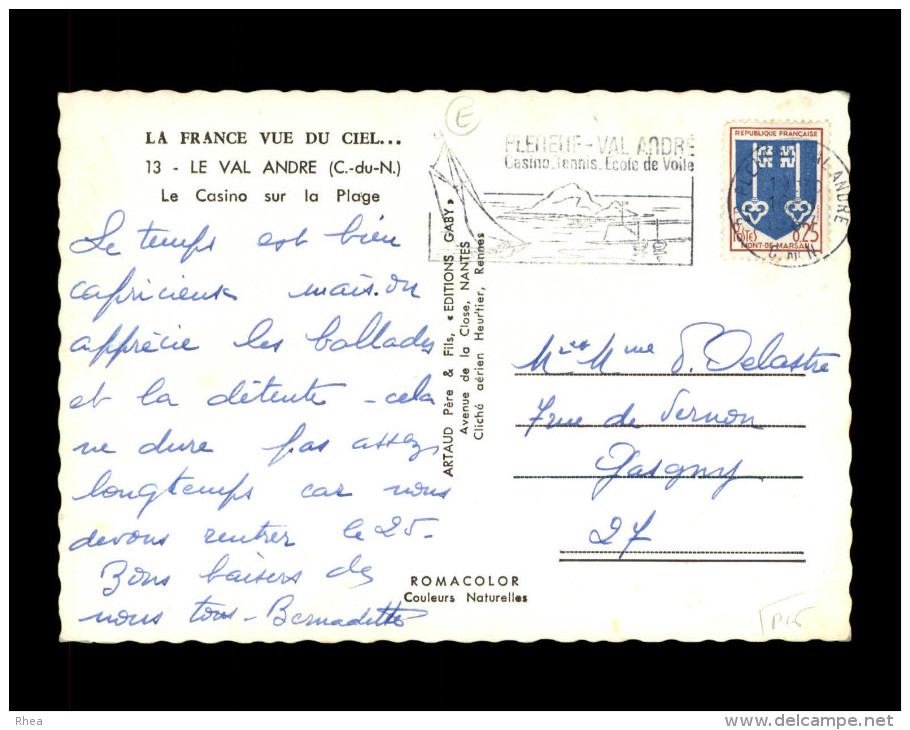 LA FRANCE VUE DU CIEL...
13 - LE VAL ANDRE (C.-du-N.)
Le Casino sur la Plage
Le temps est bien
capricieux mais on
apprécie les ballades
et la détente - cela
ne dure pas assez
longtemps car nous
devons rentrer le 25-
Bons baisers de
nous tous - Bernadette
ARTAUD Père & Fils, « EDITIONS GABY »
Avenue de la Close, NANTES
Cliché aérien Heurtier, Rennes
ROMACOLOR
Couleurs Naturelles
E
PLENEUF-VAL ANDRÉ
Casino_Tennis_Ecole de Voile
REPUBLIQUE FRANÇAISE
POSTES
0,25
MONT-DE-MARSAN
VAL-ANDRE
Mr et Mme P. Delastre
7 rue de Vernon
Gasgny
27
Rhea
www.delcampe.net